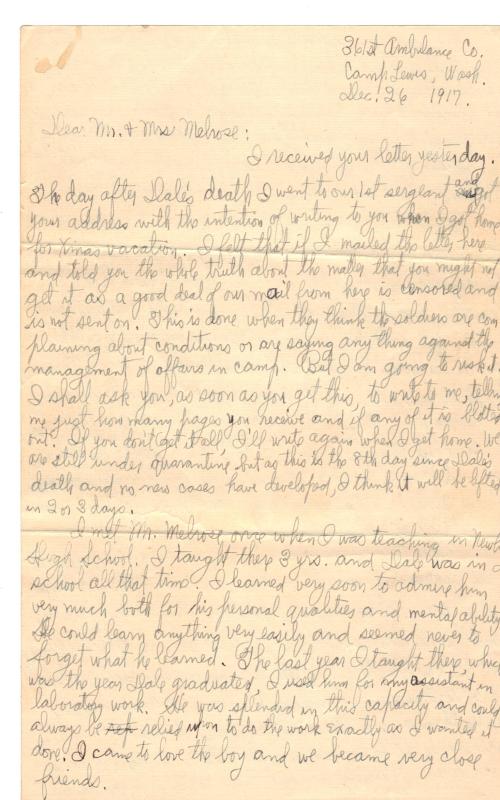 361st Ambulance Co.
Camp Lewis, Wash.
Dec. 26 1917.
Dear Mr. & Mrs Melrose:
I received your letter yesterday.
The day after Dale's death I went to our 1st sergeant and got
your address with the intention of writing to you when I got home
for Xmas vacation. I felt that if I mailed the letter here
and told you the whole truth about the matter that you might not
get it as a good deal of our mail from here is censored and
is not sent on. This is done when they think the soldiers are com
plaining about conditions or are saying anything against the
management of affairs in camp. But I am going to risk it.
I shall ask you, as soon as you get this, to write to me, tellin
me just how many pages you receive and if any of it is blotted
out. If you don't get it all, I'll write again when I get home. We
are still under quarantine but as this is the 8th day since Dale's
death and no new cases have developed, I think it will be lifted
in 2 or 3 days.
I met Mr. Melrose once when I was teaching in Newb
High School. I taught there 3 yrs. and Dale was in
school all that time. I learned very soon to admire him
very much both for his personal qualities and mental ability
He could learn anything very easily and seemed never to
forget what he learned. The last year I taught there which
was the year Dale graduated, I used him for my assistant in
laboratory work. He was splendid in this capacity and could
always be relied upon to do the work exactly as I wanted it
done. I came to love the boy and we became very close
friends.